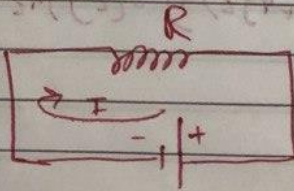 R
I
- +